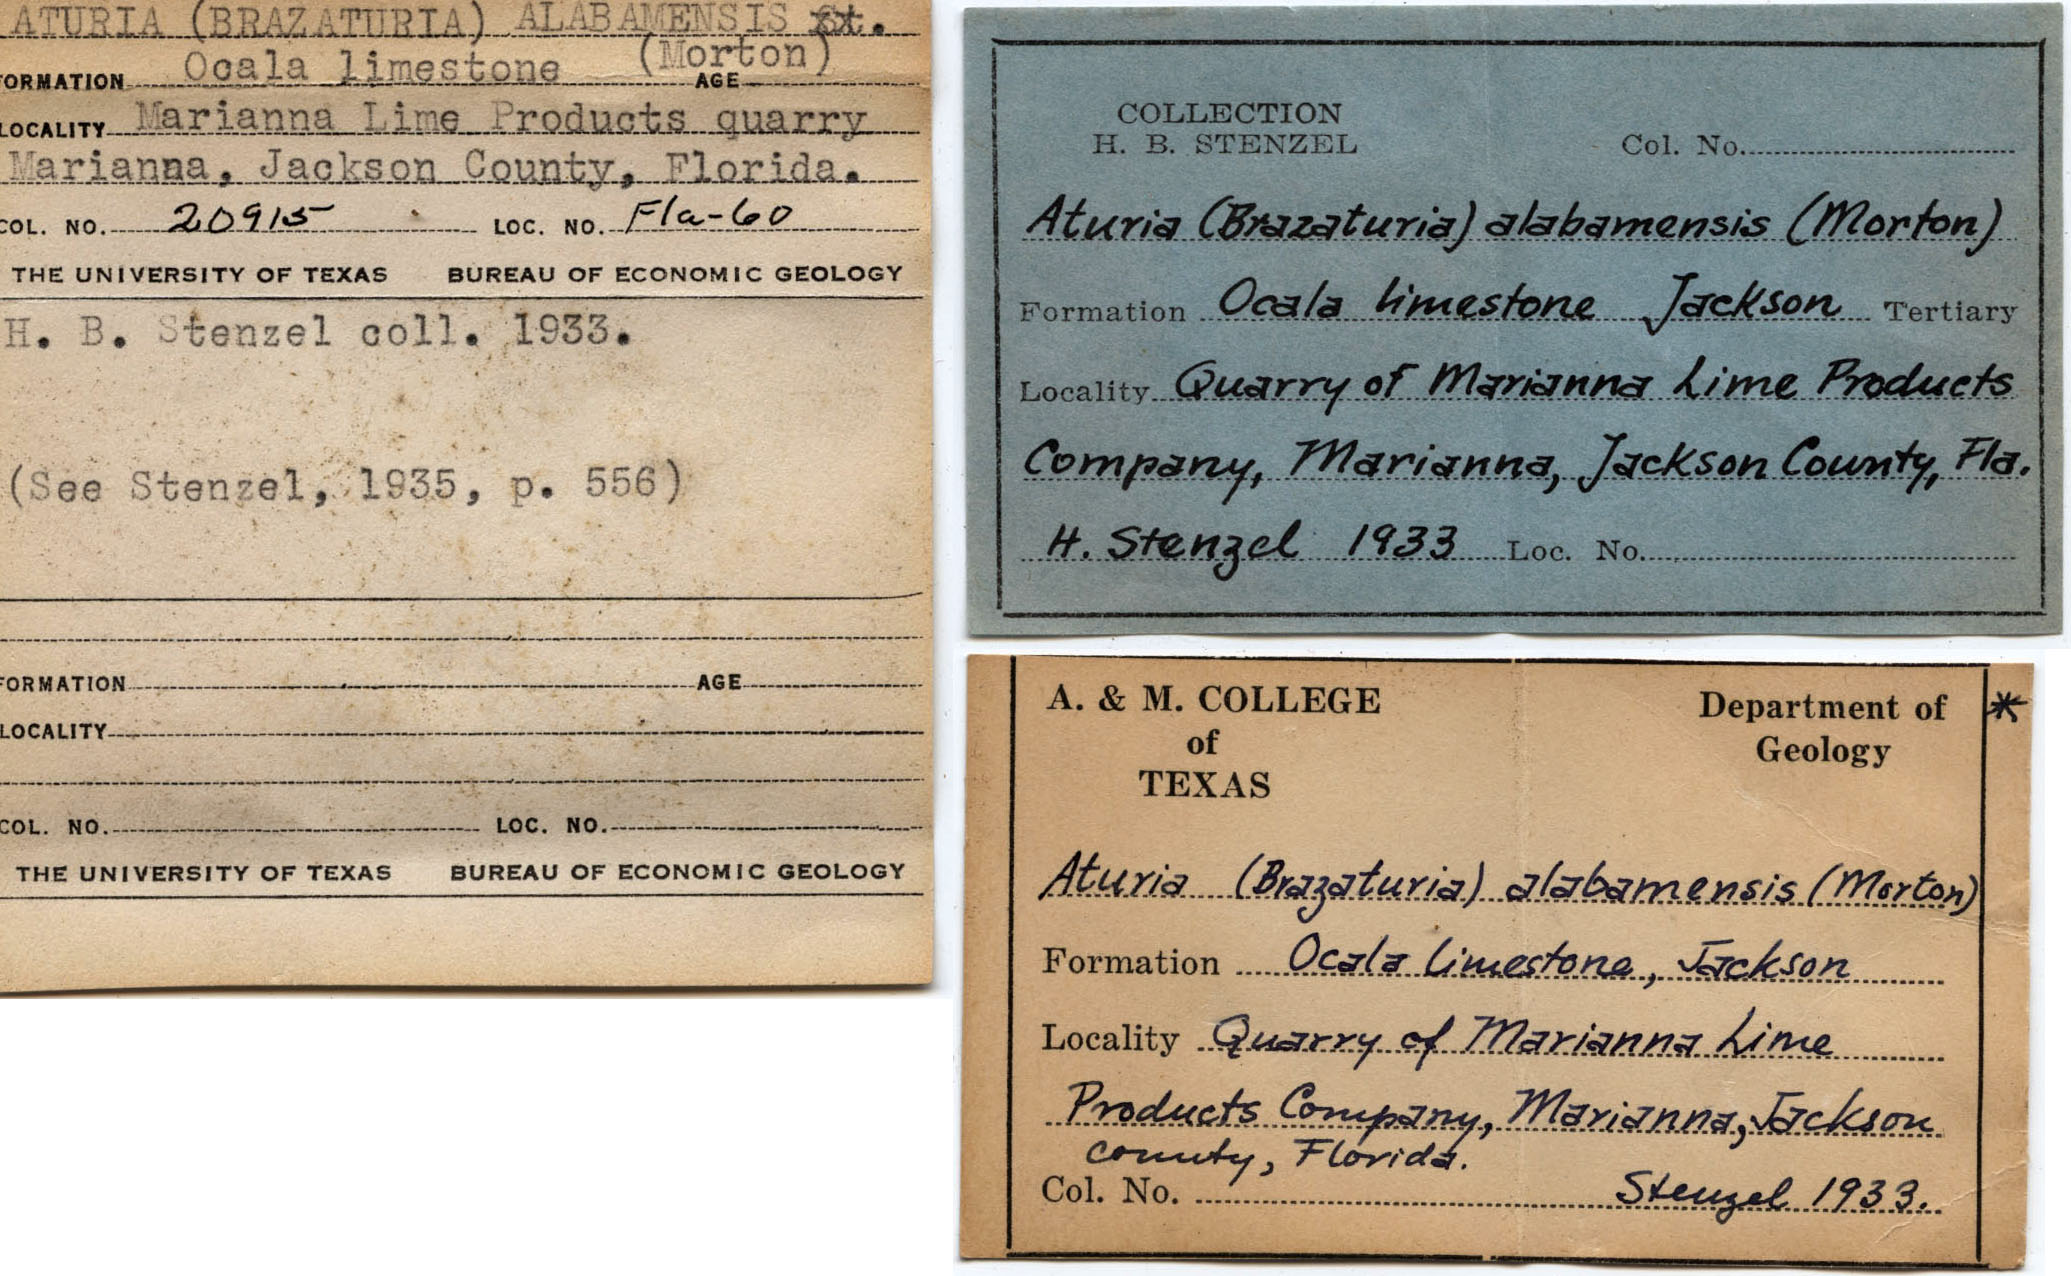 ATURIA (BRAZATURIA) ALABAMENSIS St.
(Morton)
FORMATION Ocala limestone AGE
LOCALITY Marianna Lime Products quarry
Marianna, Jackson County, Florida.
COL. NO. 20915 LOC. NO. Fla-60
THE UNIVERSITY OF TEXAS BUREAU OF ECONOMIC GEOLOGY
H. B. Stenzel coll. 1933.
(See Stenzel, 1935, p. 556)
FORMATION AGE
LOCALITY
COL. NO. LOC. NO.
THE UNIVERSITY OF TEXAS BUREAU OF ECONOMIC GEOLOGY
COLLECTION
H. B. STENZEL Col. No.
Aturia (Brazaturia) alabamensis (Morton)
Formation Ocala limestone Jackson Tertiary
Locality Quarry of Marianna Lime Products
Company, Marianna, Jackson County, Fla.
H. Stenzel 1933 Loc. No.
A. & M. COLLEGE Department of *
of Geology
TEXAS
Aturia (Brazaturia) alabamensis (Morton)
Formation Ocala limestone, Jackson
Locality Quarry of Marianna Lime
Products Company, Marianna, Jackson
county, Florida.
Col. No. Stenzel 1933.